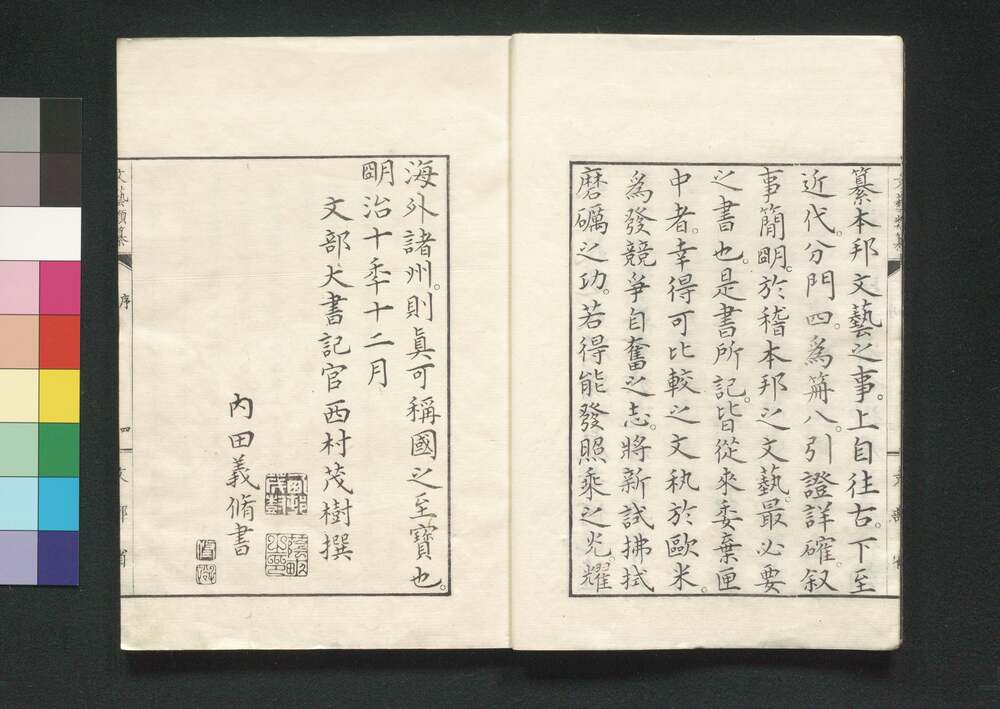 纂本邦文藝之事。上自往古。下至
近代。分門四。爲冊八。引證詳確。叙
事簡朙。於稽本邦之文藝。最必要
之書也。是書所記。皆從來委棄匣
中者。幸得可比較之文執於歐米。
爲發競爭自奮之志。將新試拂拭
磨礪之功。若得能發照乘之光耀
海外諸州。則眞可稱國之至寶也。
朙治十年十二月
文部大書記官西村茂樹撰
內田義脩書
文藝類纂
序
四
文部省